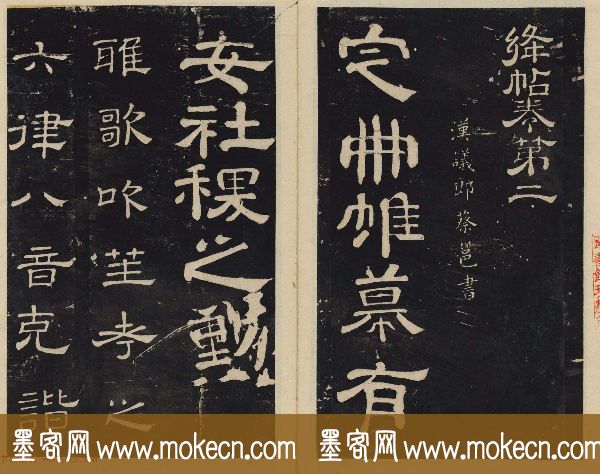 絳帖卷第二
漢議郎蔡邕書
定冊帷幕有
安社稷之勳
雅歌吹笙考之
六律八音克諧
墨客网 www.mokecn.com 墨客网 www.mokecn.com